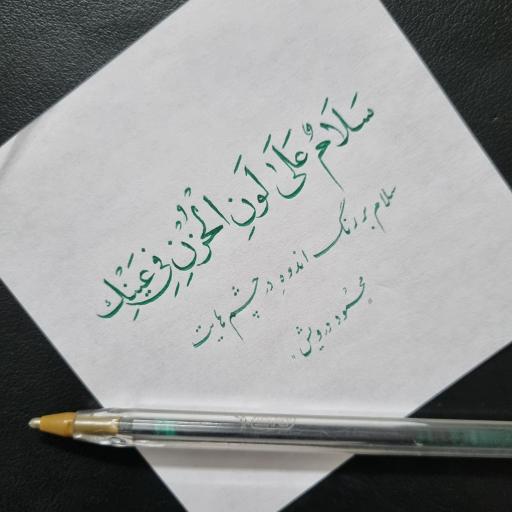 سَلَامٌ عَلَىٰ لَونِ الْحُزْنِ فِي عَينَيْكِ
سلام بر رنگ اندوهِ در چشم هایت
محمود درویش